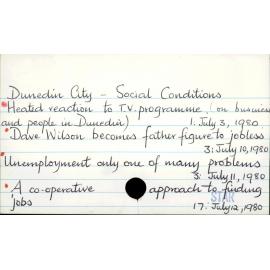 Dunedin City - Social Conditions
• Heated reaction to T.V. programme (on business
and people in Dunedin) 1: July 3, 1980
• Dave Wilson becomes father figure to jobless
3: July 10, 1980
• Unemployment only one of many problems
3: July 11, 1980
• A co-operative approach to finding
jobs STAR
17: July 12, 1980